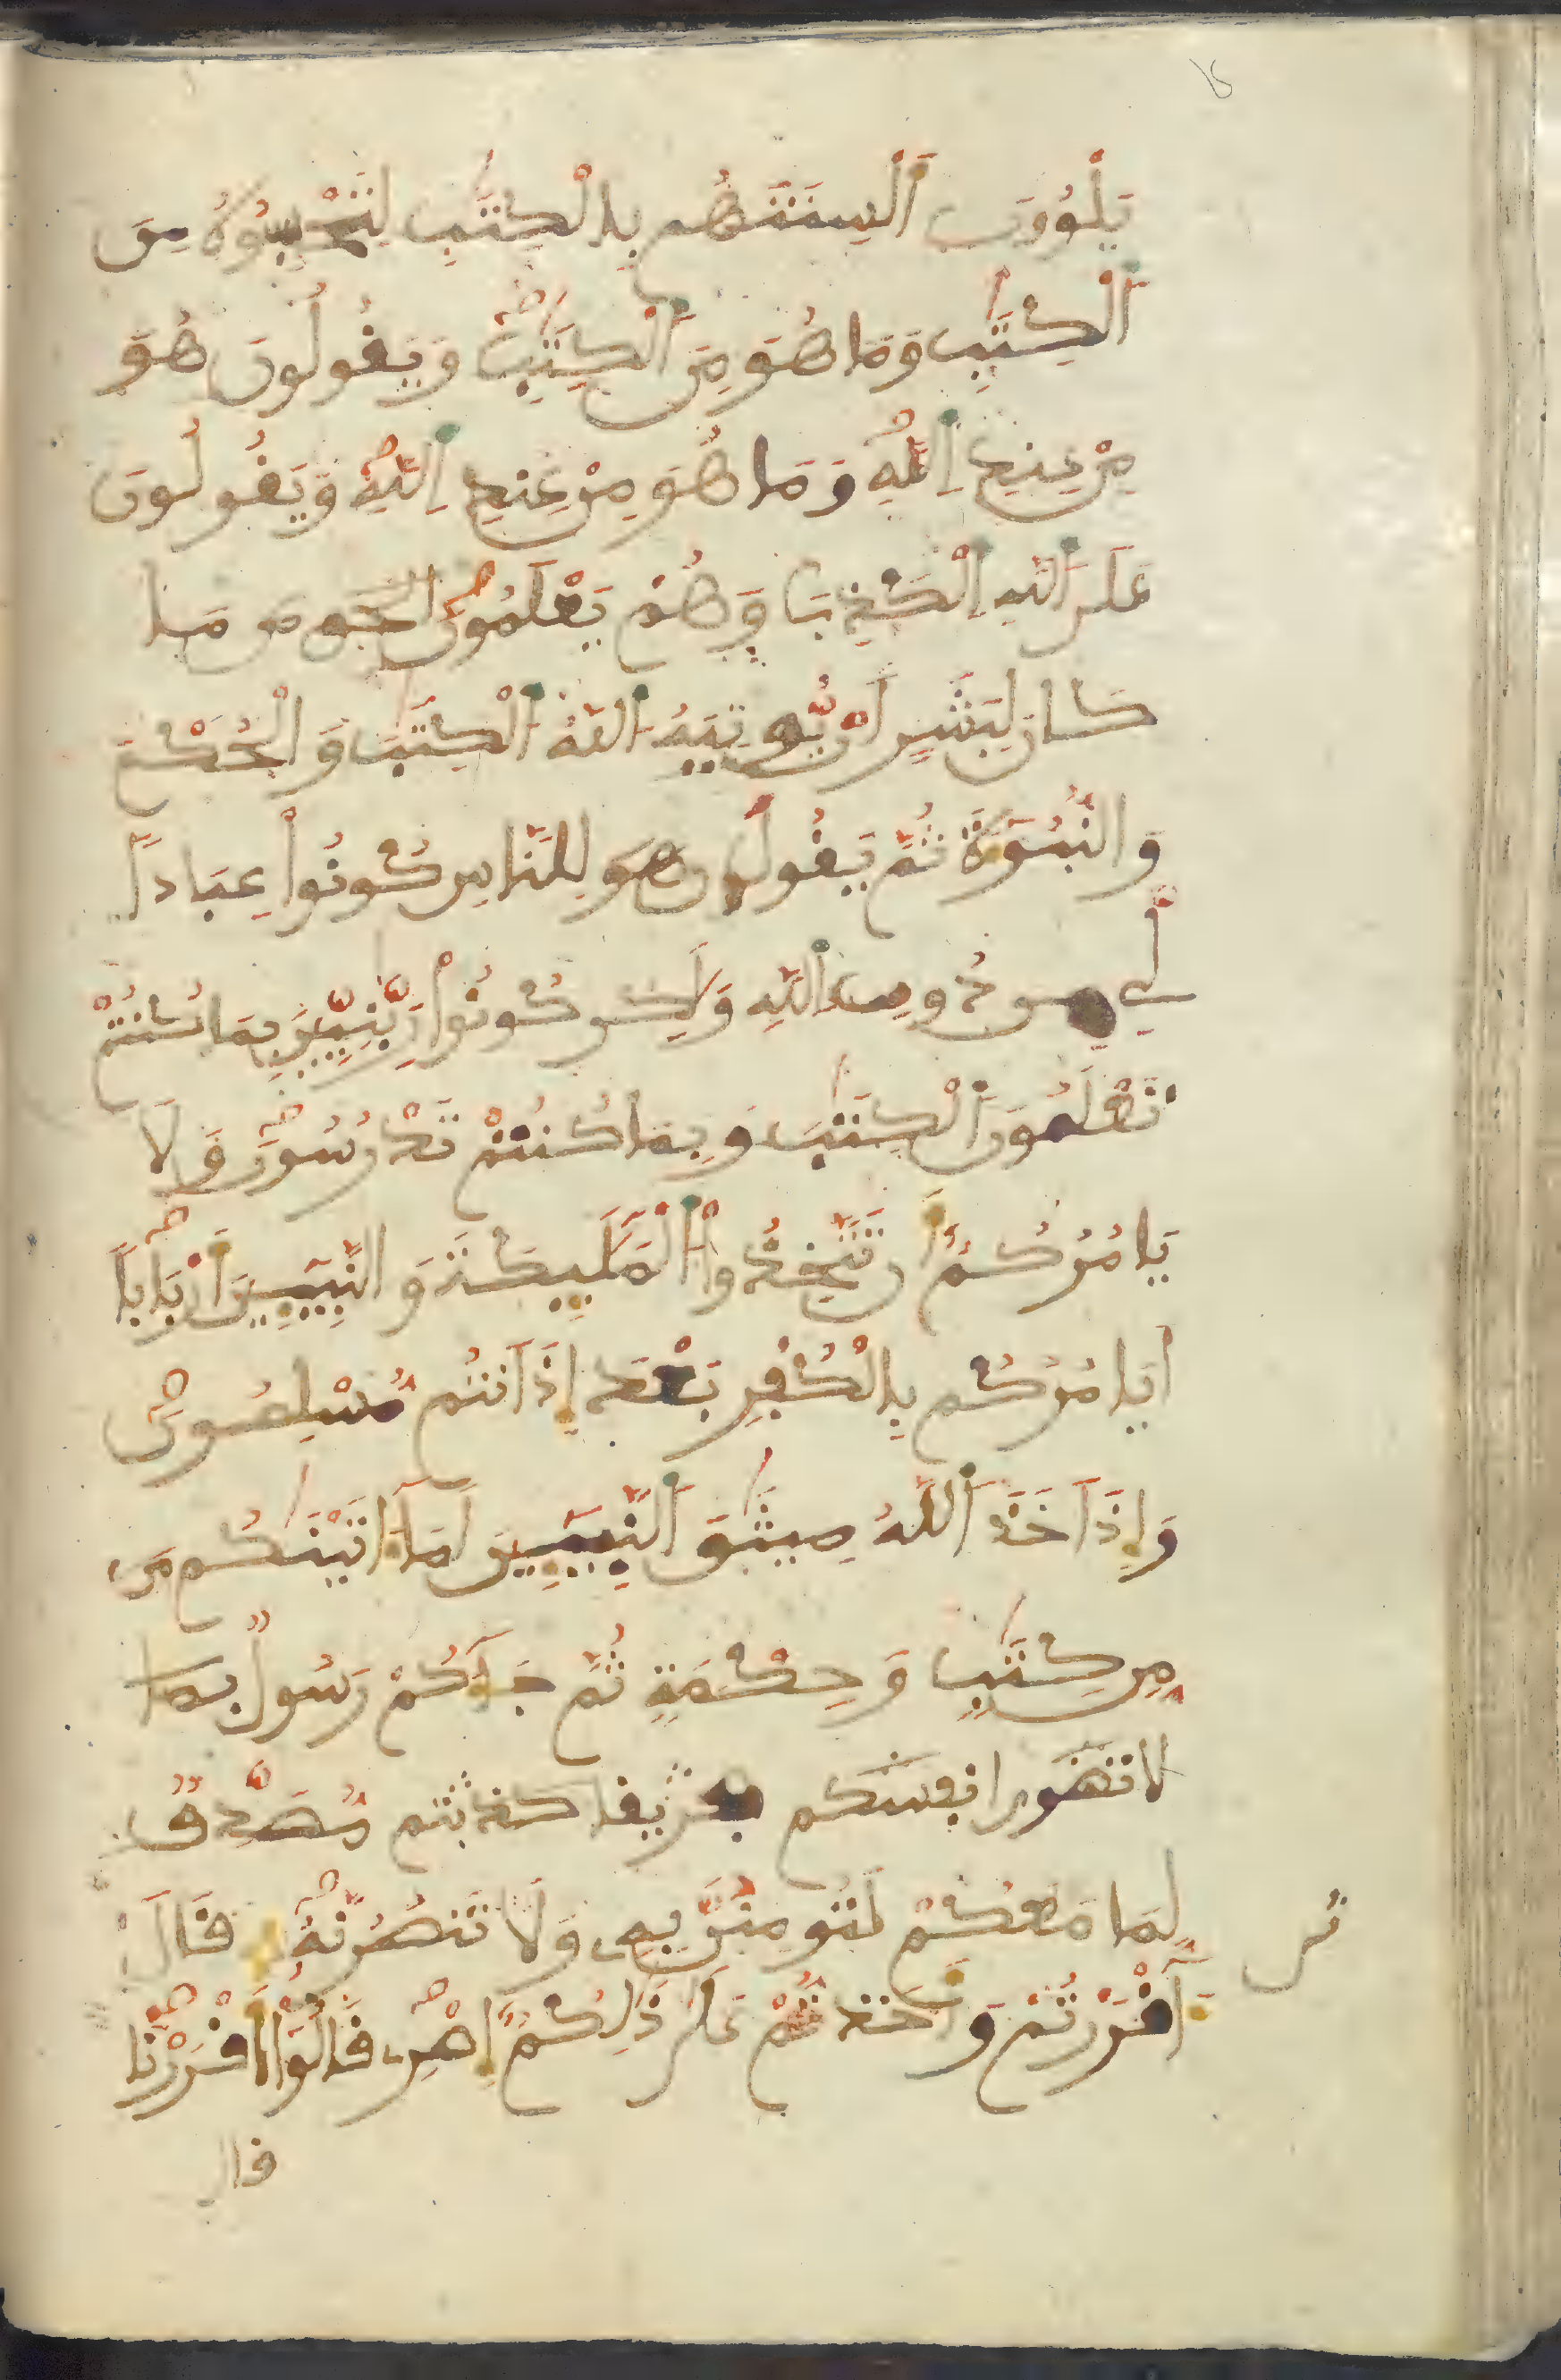 يَلْوُۥنَ أَلْسِنَتَهُم بِالْكِتَٰبِ لِتَحْسِبُوهُ مِنَ
اَ۬لْكِتَٰبِ وَمَا هُوَ مِنَ اَ۬لْكِتَٰبِ وَيَقُولُونَ هُوَ
مِنْ عِندِ اِ۬للَّهِ وَمَا هُوَ مِنْ عِندِ اِ۬للَّهِ وَيَقُولُونَ
عَلَى اَ۬للَّهِ اِ۬لْكَذِبَ وَهُمْ يَعْلَمُونَ مَا
كَانَ لِبَشَرٍ أَنْ يُّوتِيَهُ اُ۬للَّهُ اُ۬لْكِتَٰبَ وَالْحُكْمَ
وَالنُّبُوٓءَةَ ثُمَّ يَقُولَ لِلنَّاسِ كُونُواْ عِبَاداً
لِّے مِن دُونِ اِ۬للَّهِ وَلَٰكِن كُونُواْ رَبَّٰنِيِّينَ بِمَا كُنتُمْ
تَعْلَمُونَ اَ۬لْكِتَٰبَ وَبِمَا كُنتُمْ تَدْرُسُونَ وَلَا
يَامُرُكُمُۥٓ أَن تَتَّخِذُواْ اُ۬لْمَلَٰٓئِكَةَ وَالنَّبِيٓـِٕينَ أَرْبَاباً
اَيَامُرُكُم بِالْكُفْرِ بَعْدَ إِذَ اَنتُم مُّسْلِمُونَ
وَإِذَ اَخَذَ اَ۬للَّهُ مِيثَٰقَ اَ۬لنَّبِيٓـِٕينَ لَمَآ ءَاتَيْنَٰكُم مِّن
مِّن كِتَٰبٍ وَحِكْمَةٍ ثُمَّ جَآءَكُمْ رَسُولٌ بما
لا تهوى انفسكم ففريقا كذبتم مُّصَدِّقٌ
لِّمَا مَعَكُمْ لَتُومِنُنَّ بِهِۦ وَلَا تَنصُرُنَّهُۥ قَالَ
ءَآقْرَرْتُمْ وَأَخَذتُّمْ عَلَىٰ ذَٰلِكُمُۥٓ إِصْرِے قَالُوٓاْ أَقْرَرْنَا
قال